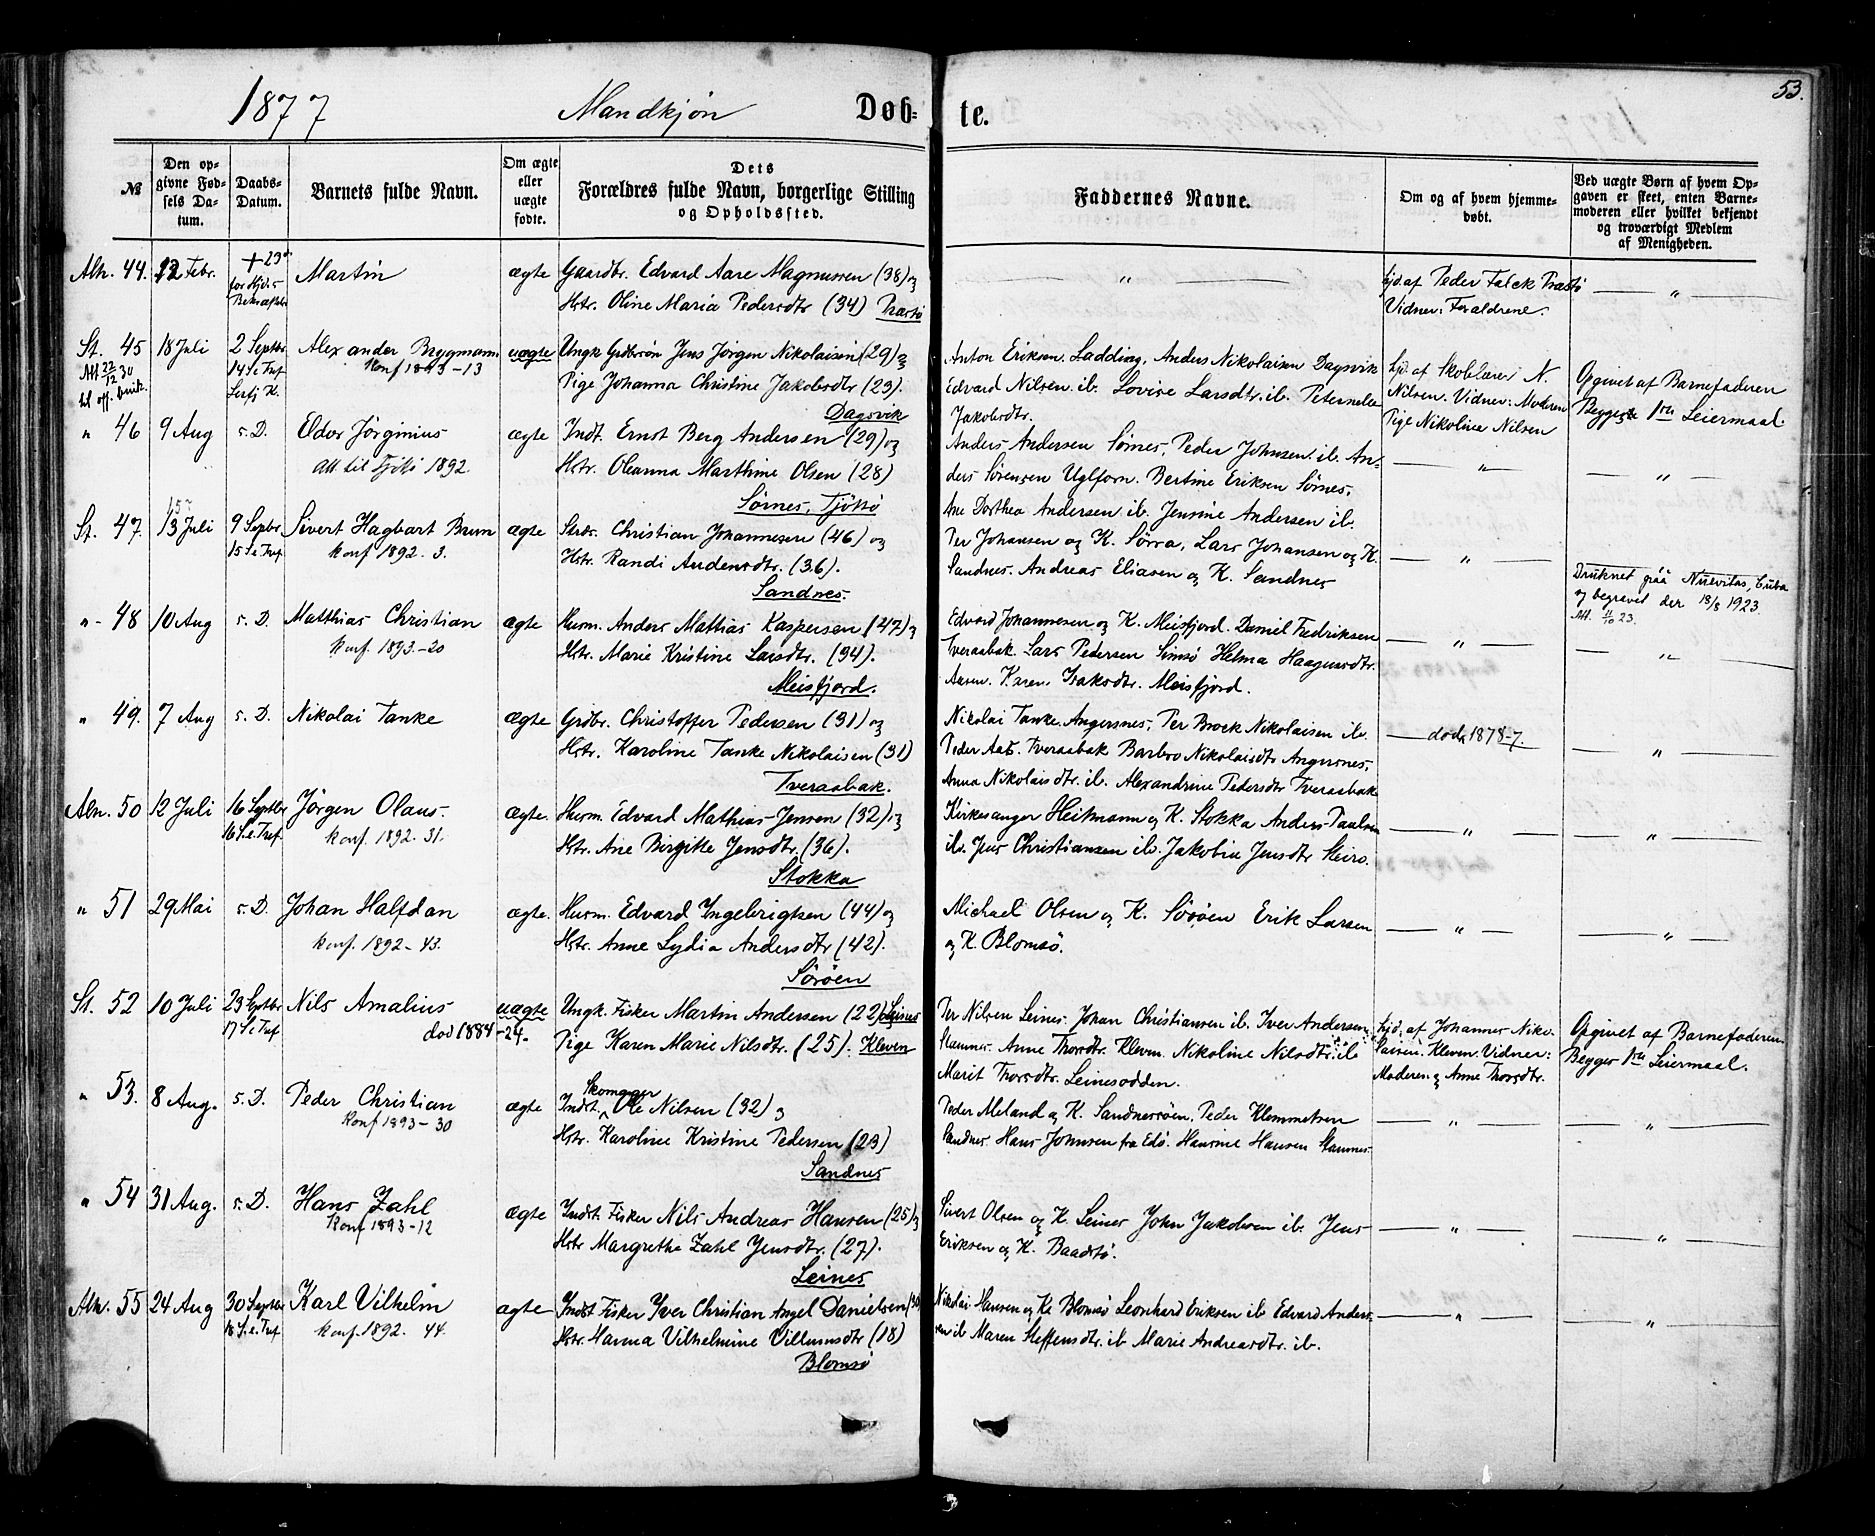 53.
1877 Mandkjøn Døb- te.
№
Den opgivne Fødsels Datum.
Daabs-Datum.
Barnets fulde Navn.
Om ægte eller uægte fødte.
Dets Forældres fulde Navn, borgerlige Stilling og Opholdssted.
Faddernes Navne.
Om og af hvem hjemmedøbt.
Ved uægte Børn af hvem Opgaven er skeet, enten Barnemoderen eller hvilket bekjendt og troværdigt Medlem af Menigheden.
Alh. 44. 12 Febr. Martin ægte Gaardbr. Edvard Aare Magnussen (38) og — " — hjd. af Peder Falck Træstø — " —
Hstr. Oline Maria Pedersdtr (34) Træstø Vidner: Forældrene.
St. 45 18 Juli 2 Septbr Alexander Brygmann uægte Ungk Grdbrsøn Jens Jörgen Nikolaisen (29) og Anton Eriksen Ladding, Anders Nikolaisen Dagsvik hjd. af Skolelærer N. Opgivet af Barnefaderen
Att 22/12 30 14 S. e Tref Konf 1893-13 Pige Johanna Christine Jakobsdtr (29). Edvard Nilsen ib. Lovise Larsdtr. ib. Peternelle Nilsen. Vidner: Moderen Begges 1ste Leiermaal.
Dagsvik Jakobsdtr. Pige Nikoline Nilsen
" 46 9 Aug s. D. Eldor Jørginius ægte Indt. Ernst Berg Andersen (29) og Anders Andersen Sörnes, Peder Johnsen ib. An- — " — — " —
Att til Tjötö 1892. Hstr. Oleanna Marthine Olsen (28) ders Sörensen Uglforn. Bertine Eriksen Sörnes.
Sörnes, Tjöttö Ane Dorthea Andersen ib. Jensine Andersen ib.
St. 47. 13 Juli 9 Septbr Sivert Hagbart Brun ægte Christian Johannesen (46) og Per Johansen og K. Sörra, Lars Johansen og K. — " —
15 S. e Tref Konf 1892. 3. Hstr. Randi Andersdtr. (36). Sandnes. Andreas Eliasen og K. Sandnes
Sandnes.
Druknet paa Nuevitas, Cuba
og begravet der 18/8 1923.
Att. 4/10 23.
"- 48 10 Aug s. D. Matthias Christian ægte Husm. Anders Mattias Kaspersen (47) og Edvard Johannesen og K. Meisfjord. Daniel Fredriksen — " — — " —
Konf. 1893.-20 Hstr. Marie Kristine Larsdtr. (34). Tveraabak. Lars Pedersen Simsö Helma Haagensdtr.
Meisfjord. Aasen. Karen Isaksdtr. Meisfjord.
" 49. 7 Aug s. D. Nikolai Tanke ægte Grdbr. Christoffer Pedersen (31) og Nikolai Tanke Angersnes, Per Brock Nikolaisen ib. — död 1878-7. — " —
Hstr. Karoline Tanke Nikolaisen (31) Peder Aas. Tveraabak Barbro Nikolaisdtr Angersnes,
Tveraabak. Anna Nikolaisdtr. ib. Alexandrine Pedersdtr Tveraabak
Alh. 50 12 Juli 16 Septbr Jörgen Olaus. ægte. Husm. Edvard Mathias Jensen (32) og Kirkesanger Heitmann og K. Stokka Anders Paulsen — " — — " —
16 S. e. Tref Konf. 1892. 31. Hstr. Ane Birgitte Jensdtr. (36). ib. Jens Christiansen ib. Jakobine Jensdtr Steiro.
Stokka
" 51 29 Mai s. D. Johan Halfdan ægte. Husm. Edvard Ingebrigtsen (44) og Michael Olsen og K. Söröen Erik Larsen — " — — " —
Konf. 1892- 43. Hstr. Anne Lydia Andersdtr (42). og K. Blomsö.
Söröen
St. 52 10 Juli 23 Septbr Nils Amalius uægte Ungk. Fisker Martin Andersen (22) Leines Per Nilsen Leines. Johan Christiansen ib. Iver Andersen hjd. af Johannes Niko- Opgivet af Barnefaderen
17 S. e Tref död 1884-24. Pige Karen Marie Nilsdtr. (25). Kleven Stamnes. Anne Thorsdtr. Kleven. Nikoline Nilsdtr ib laisen. Kleven. Vidner: Begges 1ste Leiermaal.
Marit Thorsdtr. Leinesodden. Moderen og Anne Thorsdtr.
" 53. 8 Aug. s. D. Peder Christian ægte Indst. Skomager Ole Nilsen (32) og Peder Meland og K. Sandnessöen. Peder Klemmetsen — " — — " —
Konf 1893-30 Hstr. Karoline Kristine Pedersen (23) Sandnes. Hans Johnsen fra Edö. Hansine Hansen Stamnes.
Sandnes
" 54 31 Aug. s. D. Hans Zahl ægte Indst. Fisker Nils Andreas Hansen (25) og Sivert Olsen og K. Leines John Jakobsen ib. Jens — " — — " —
Konf 1893-12 Hstr Margrethe Zahl Jensdtr. (27). Eriksen og K. Baadstö.
Leines
Alh. 55 24 Aug 30 Septbr Karl Vilhelm ægte Indst Fisker Iver Christian Angel Danielsen Nikolai Hansen og K. Blomsö Leonhard Eriksen ib Edvard Anders- — " — — " —
18 S. e. Tref Konf. 1892. 44. Hstr. Hanna Vilhelmine Villumsdtr (18) sen ib Maren Steffensdtr. ib Marie Andreasdtr. ib.
Blomsö